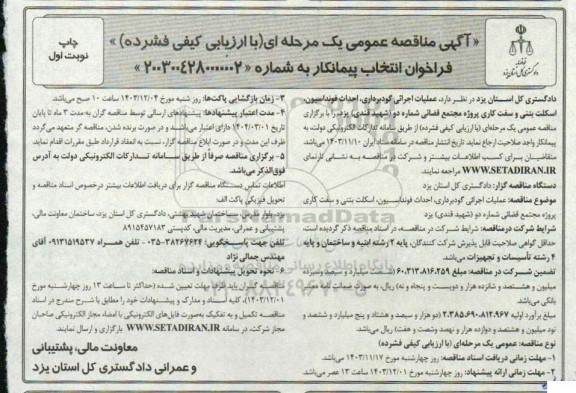 « آگهی مناقصه عمومی یک مرحله ای(با ارزیابی کیفی فشرده) »
فراخوان انتخاب پیمانکار به شماره « ۲۰۰۳۰۰۴۲۸۰۰۰۰۰۰۲ »
چاپ
نوبت اول
دادگستری کل استان یزد در نظر دارد، عملیات اجرائی گودبرداری، احداث فونداسیون،
اسکلت بتنی و سفت کاری پروژه مجتمع قضائی شماره دو (شهید قندی) یزد را با برگزاری
مناقصه عمومی یک مرحله‌ای (با ارزیابی کیفی فشرده) از طریق سامانه تدارکات الکترونیکی دولت، به
پیمانکار واجد صلاحیت ارجاع نماید. تاریخ انتشار مناقصه در سامانه ستاد ایران ۱۴۰۳/۱۱/۱۰ می‌باشد.
متقاضیان برای کسب اطلاعات بیشتر و شرکت در مناقصه به نشانی تارنمای
WWW.SETADIRAN.IR مراجعه نمایند.
دستگاه مناقصه گزار: دادگستری کل استان یزد
موضوع مناقصه: عملیات اجرائی گودبرداری، احداث فونداسیون، اسکلت بتنی و سفت کاری
پروژه مجتمع قضائی شماره دو (شهید قندی) یزد
شرایط شرکت درمناقصه: شرایط شرکت در مناقصه، در اسناد مناقصه ذکر گردیده است.
حداقل گواهی صلاحیت قابل پذیرش شرکت کنندگان، پایه ۴ رشته ابنیه و ساختمان و پایه
۴ رشته تأسیسات و تجهیزات می‌باشد.
تضمین شرکت در مناقصه: مبلغ ۶۰.۲۱۳.۸۱۶.۲۵۹ (شصت میلیارد و دویست و سیزده
میلیون و هشتصد و شانزده هزار و دویست و پنجاه و نه) ریال، به صورت ضمانت نامه معتبر
بانکی می‌باشد.
مبلغ برآورد اولیه ۲.۳۸۵.۶۹۰.۸۱۲.۹۶۷ (دو هزار و سیصد و هشتاد و پنج میلیارد و ششصد و
نود میلیون و هشتصد و دوازده هزار و نهصد و شصت و هفت) ریال می‌باشد.
نوع مناقصه: عمومی یک مرحله‌ای (با ارزیابی کیفی فشرده)
۱- مهلت زمانی دریافت اسناد مناقصه: روز چهارشنبه مورخ ۱۴۰۳/۱۱/۱۷ می‌باشد.
۲- مهلت زمانی ارائه پیشنهاد: روز چهارشنبه مورخ ۱۴۰۳/۱۲/۰۱ ساعت ۱۳ عصر می‌باشد.
۳- زمان بازگشایی پاکت‌ها: روز شنبه مورخ ۱۴۰۳/۱۲/۰۴ ساعت ۱۰ صبح می‌باشد.
۴- مدت اعتبار پیشنهادها: پیشنهادهای ارسالی توسط مناقصه گران به مدت ۳ ماه تا پایان
تاریخ ۱۴۰۴/۰۳/۰۱ دارای اعتبار می‌باشند و در صورت برنده شدن، مناقصه گر متعهد می‌گردد
ظرف این مدت و در صورت ابلاغ مناقصه گزار، نسبت به انعقاد قرارداد طبق مقررات اقدام نماید.
۵- برگزاری مناقصه صرفاً از طریق سامانه تدارکات الکترونیکی دولت به آدرس
فوق‌الذکر می‌باشد.
اطلاعات تماس دستگاه مناقصه گزار برای دریافت اطلاعات بیشتر درخصوص اسناد مناقصه و
تحویل فیزیکی پاکت الف:
دادگستری کل استان یزد، ساختمان معاونت مالی،
پشتیبانی و عمرانی، مدیریت مالی، کدپستی ۸۹۱۵۴۵۷۱۸۳
تلفن جهت پاسخگویی: ۳۸۲۶۷۶۲۴-۰۳۵ تلفن همراه ۰۹۱۳۱۵۱۹۵۳۷ آقای
مهندس جمالی نژاد
۶- نحوه تحویل پیشنهادات و اسناد مناقصه:
مناقصه گران باید تا مهلت تعیین شده (حداکثر تا ساعت ۱۳ روز چهارشنبه مورخ
۱۴۰۳/۱۲/۰۱)، کلیه اسناد و مدارک و پیشنهادات خود را مطابق با شرح مندرج در اسناد
مناقصه تکمیل و به تفکیک به‌صورت فایل‌های الکترونیکی با امضاء مجاز الکترونیکی صاحبان
مجاز شرکت، در سامانه WWW.SETADIRAN.IR بارگزاری و ارسال نمایند.
معاونت مالی، پشتیبانی
و عمرانی دادگستری کل استان یزد
ParsNamadData
پایگاه اطلاع رسانی